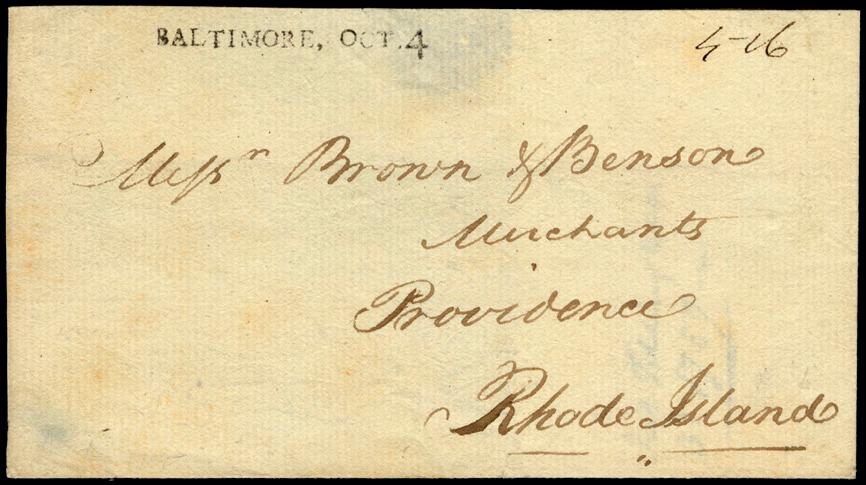 BALTIMORE, OCT. 4
5-16
Messrs Brown & Benson
Merchants
Providence
Rhode Island